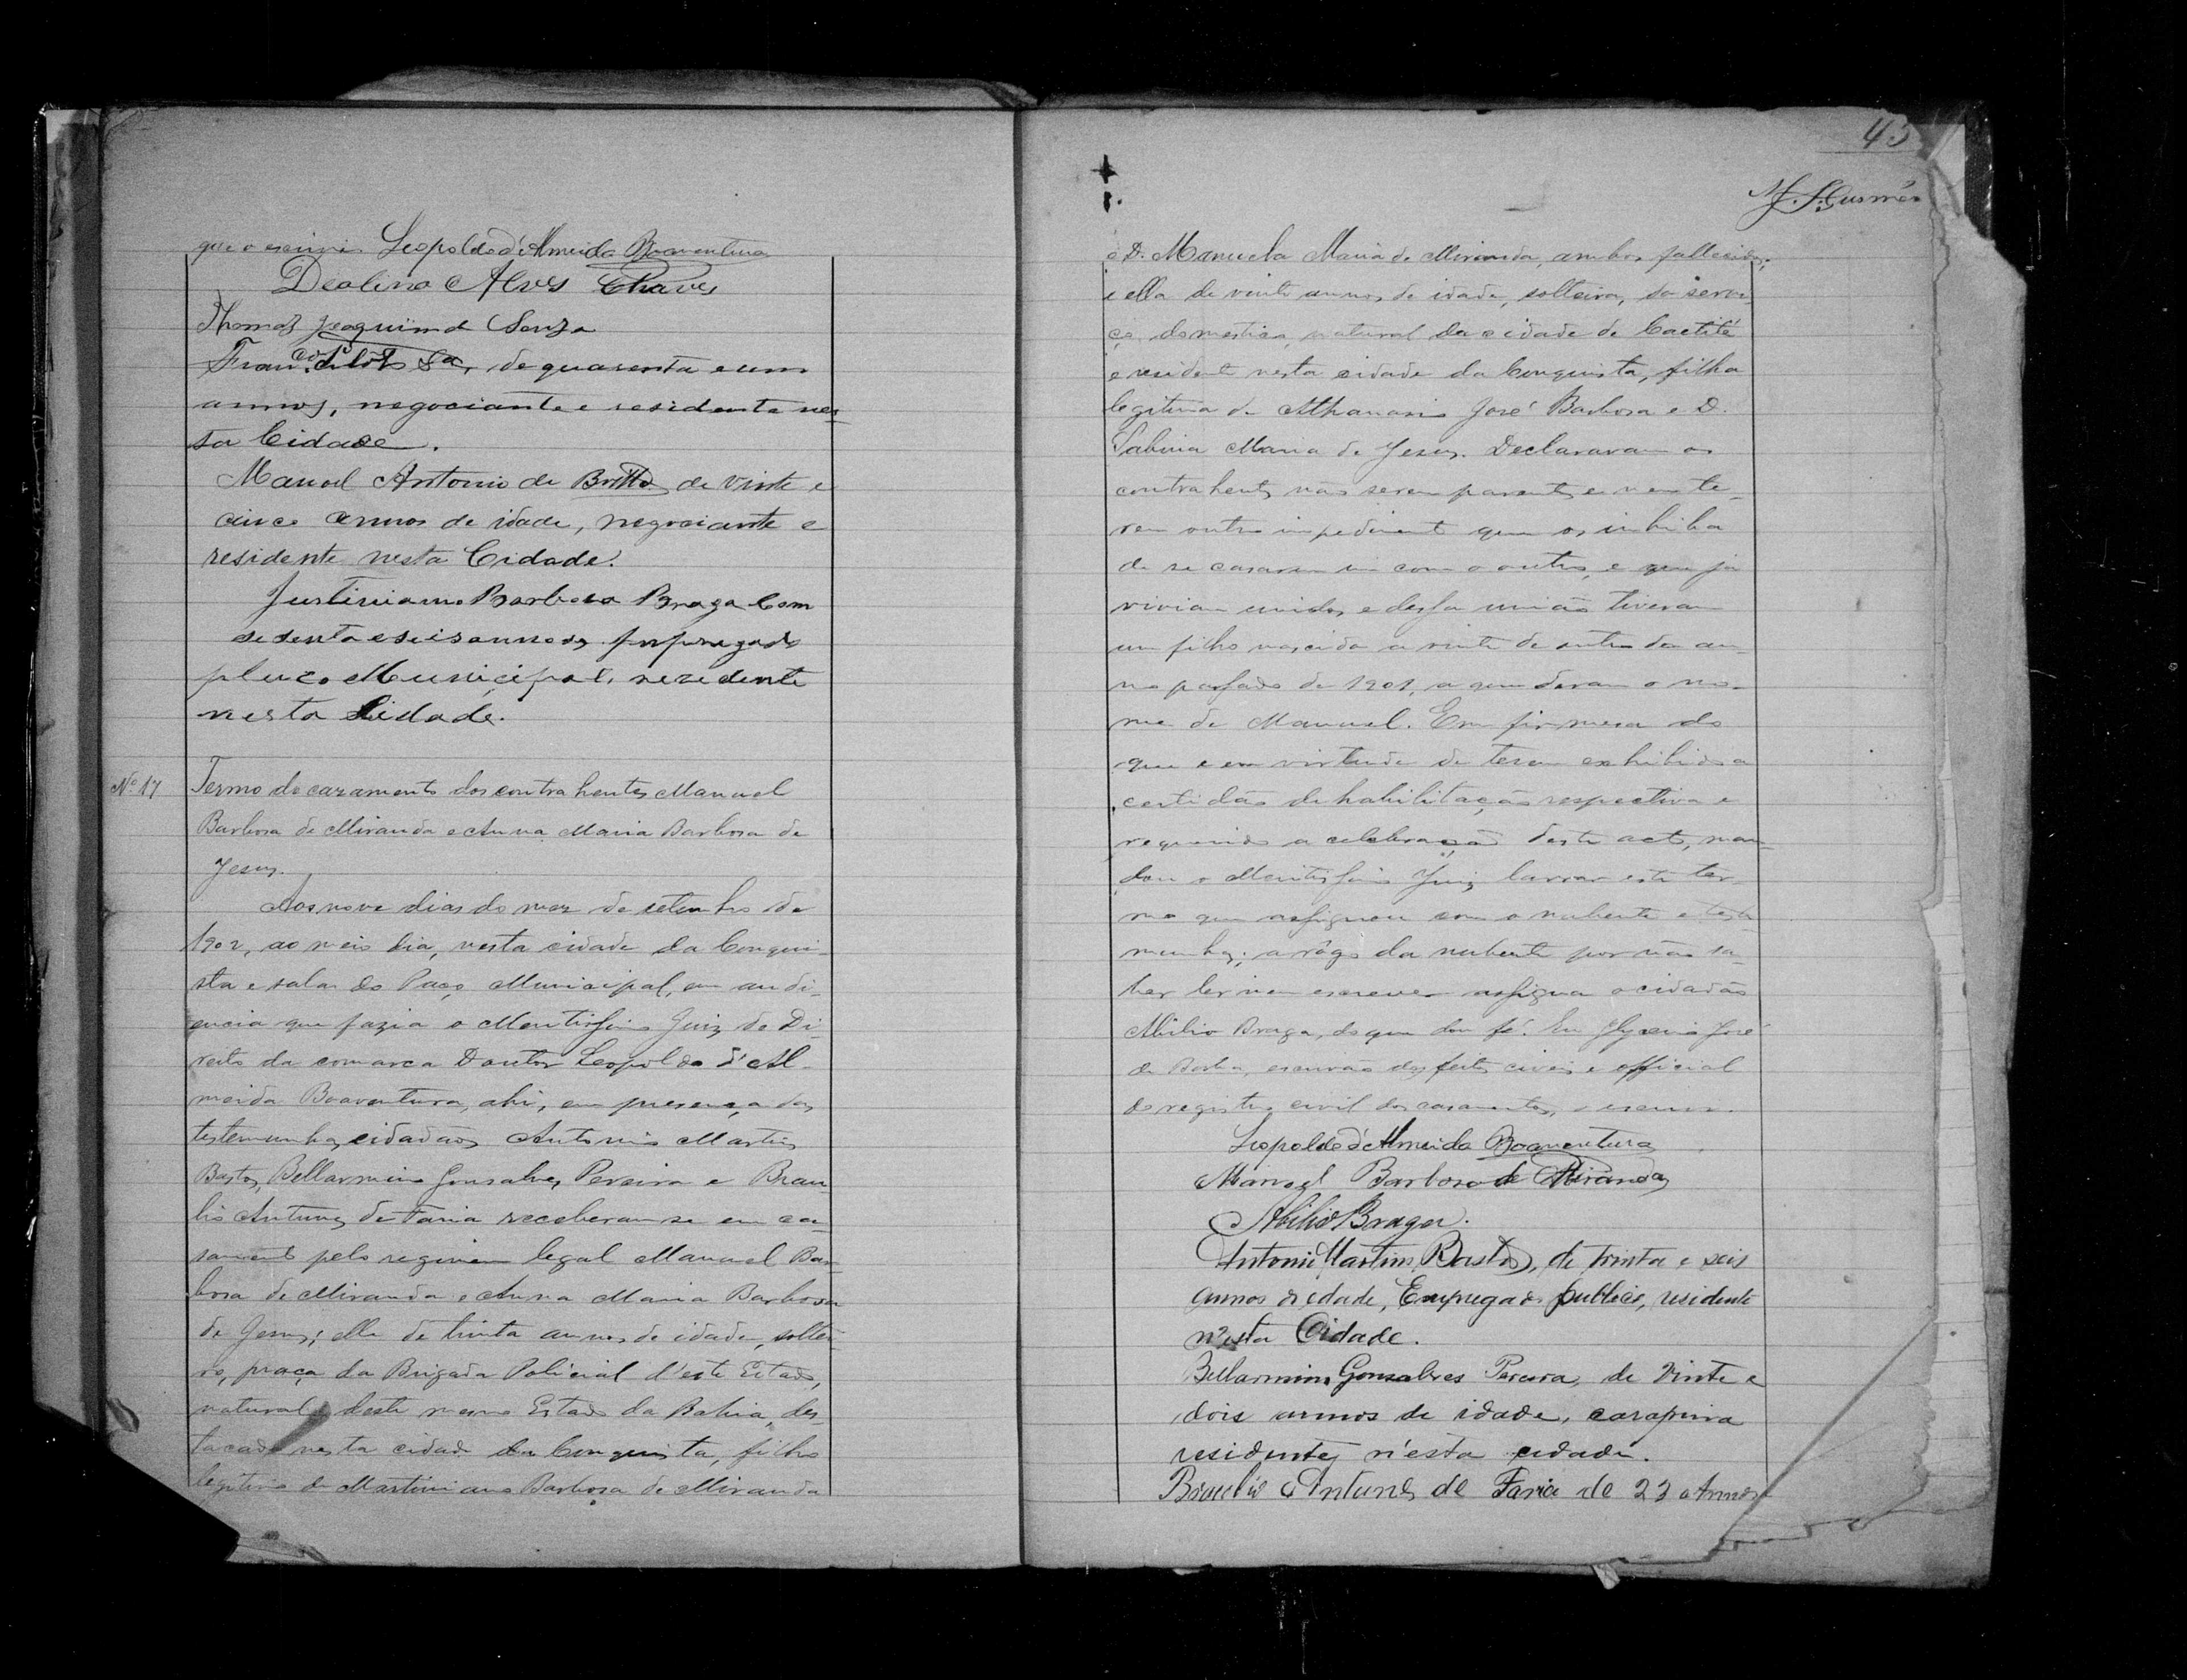 que o escrivi Leopoldo d'Almeida Boaventura
Deolino Alves Chaves
Thomaz Joaquim de Souza
de quarenta e um
annos, negociante e residente nes-
ta Cidade.
Manoel Antonio de Britto de vinte e
cinco annos de idade, negociante e
residente nesta Cidade.
Justiniano Barbosa Braga Com
sesenta e seis annos
Municipal, rezidente
nesta Cidade.
Nº 17
Termo do cazamento dos contrahentes Manuel
Barbosa de Miranda e Anna Maria Barbosa de
Jesus.
Aos nove dias do mez de setembro de
1902, ao meio dia, nesta cidade da Conqui-
sta e sala do Paço Municipal, em audi-
encia que fazia o Meritissimo Juiz de Di-
reito da comarca Doutor Leopoldo d'Al-
meida Boaventura, ahi, em presença das
testemunhas, cidadãos Antonio Martins
Bastos, Bellarmino Gonsalves Pereira e Brau-
lio Antunes de Faria receberam-se em ca-
samento pelo regimen legal Manuel Bar-
bosa de Miranda e Anna Maria Barbosa
de Jesus; elle de trinta annos de idade, soltei-
ro, praça da Brigada Policial d'este Estado,
natural deste mesmo Estado da Bahia, des-
tacado nesta cidade da Conquista, filho
legitimo de Martiniano Barbosa de Miranda
43
e D. Manuela Maria de Miranda, ambos fallecidos;
e ella de vinte annos de idade, solteira, do servi-
ço domestico, natural da cidade de Caetité
e residente nesta cidade da Conquista, filha
legitima de Athanasio José Barbosa e D.
Sabina Maria de Jesus. Declararam os
contrahentes não serem parentes e nem te-
rem outro impedimento que os inhiba
de se casarem um com o outro, e que já
viviam unidos e dessa união tiveram
um filho nascido a vinte de outubro do an-
no passado de 1901, a quem deram o no-
me de Manuel. Em firmeza do
que e em virtude de terem exhibido a
certidão de habilitação respectiva e
requerido a celebração deste acto, man-
dou o Meritissimo Juiz lavrar este ter-
mo que assignou com o nubente e teste-
munhas; a rôgo da nubente por não sa-
ber ler nem escrever assigna o cidadão
Abilio Braga, do que dou fé. Eu José
de escrivão dos feitos civeis e official
do registro civil dos casamentos, o escrevi.
Leopoldo d'Almeida Boaventura
Manoel Barbosa de Miranda
Abilio Braga.
Antonio Martins Bastos, de trinta e seis
annos de edade, Empregado publico, residente
n'esta Cidade.
Bellarmino Gonsalves Pereira, de vinte e
dois annos de idade, carapina
residente n'esta cidade.
Braulio Antunes de Faria de 23 Annos